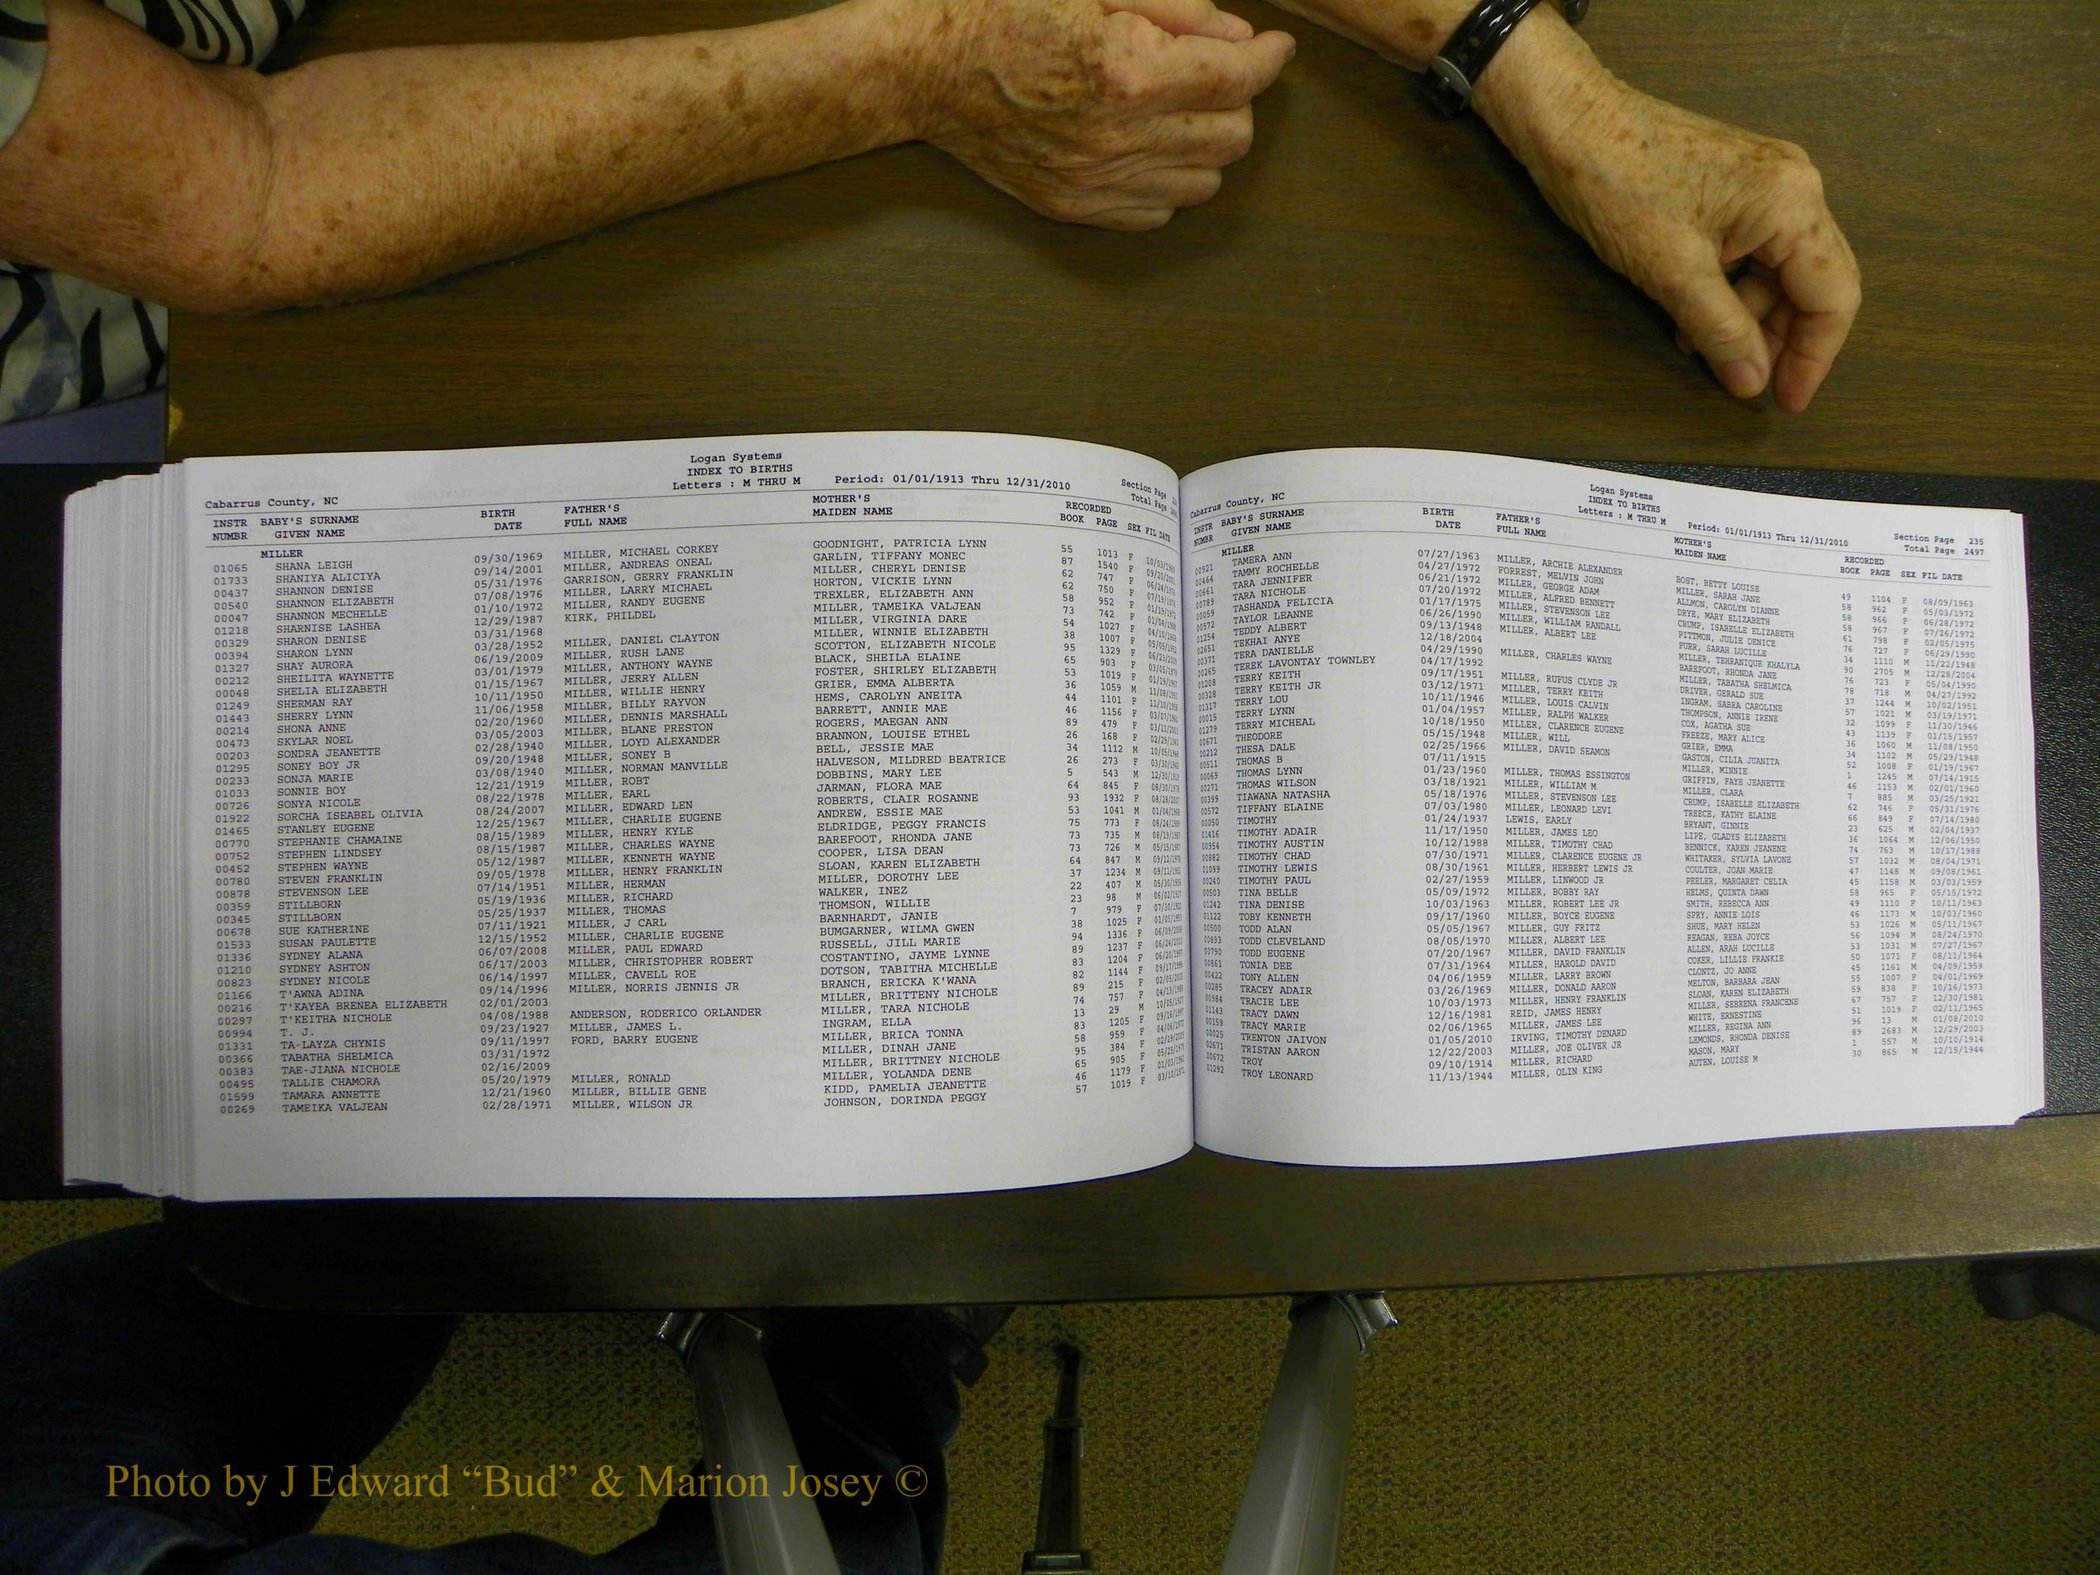 Logan Systems
INDEX TO BIRTHS
Cabarrus County, NC Letters : M THRU M Period: 01/01/1913 Thru 12/31/2010 Section Page
Total Page
INSTR BABY'S SURNAME BIRTH FATHER'S MOTHER'S RECORDED
NUMBR GIVEN NAME DATE FULL NAME MAIDEN NAME BOOK PAGE SEX FIL DATE
MILLER
01065 SHANA LEIGH 09/30/1969 MILLER, MICHAEL CORKEY GOODNIGHT, PATRICIA LYNN 55 1013 F 10/03/1969
01733 SHANIYA ALICIYA 09/14/2001 MILLER, ANDREAS ONEAL GARLIN, TIFFANY MONEC 87 1540 F 09/20/2001
00437 SHANNON DENISE 05/31/1976 GARRISON, GERRY FRANKLIN MILLER, CHERYL DENISE 62 747 F
00540 SHANNON ELIZABETH 07/08/1976 MILLER, LARRY MICHAEL HORTON, VICKIE LYNN 62 750 F
00047 SHANNON MECHELLE 01/10/1972 MILLER, RANDY EUGENE TREXLER, ELIZABETH ANN 58 952 F
01218 SHARNISE LASHEA 12/29/1987 KIRK, PHILDEL MILLER, TAMEIKA VALJEAN 73 742 F
00329 SHARON DENISE 03/31/1968 MILLER, VIRGINIA DARE 54 1027 F
00394 SHARON LYNN 03/28/1952 MILLER, DANIEL CLAYTON MILLER, WINNIE ELIZABETH 38 1007 F
01327 SHAY AURORA 06/19/2009 MILLER, RUSH LANE SCOTTON, ELIZABETH NICOLE 95 1329 F
00212 SHEILITA WAYNETTE 03/01/1979 MILLER, ANTHONY WAYNE BLACK, SHEILA ELAINE 65 903 F
00048 SHELIA ELIZABETH 01/15/1967 MILLER, JERRY ALLEN FOSTER, SHIRLEY ELIZABETH 53 1019 F
01249 SHERMAN RAY 10/11/1950 MILLER, WILLIE HENRY GRIER, EMMA ALBERTA 36 1059 M
01443 SHERRY LYNN 11/06/1958 MILLER, BILLY RAYVON HEMS, CAROLYN ANEITA 44 1101 F
00214 SHONA ANNE 02/20/1960 MILLER, DENNIS MARSHALL BARRETT, ANNIE MAE 46 1156 F
00473 SKYLAR NOEL 03/05/2003 MILLER, BLANE PRESTON ROGERS, MAEGAN ANN 89 479 F
00203 SONDRA JEANETTE 02/28/1940 MILLER, LOYD ALEXANDER BRANNON, LOUISE ETHEL 26 168 F
01295 SONEY BOY JR 09/20/1948 MILLER, SONEY B BELL, JESSIE MAE 34 1112 M
00233 SONJA MARIE 03/08/1940 MILLER, NORMAN MANVILLE HALVESON, MILDRED BEATRICE 26 273 F
01033 SONNIE BOY 12/21/1919 MILLER, ROBT DOBBINS, MARY LEE 5 543 M
00726 SONYA NICOLE 08/22/1978 MILLER, EARL JARMAN, FLORA MAE 64 845 F
01922 SORCHA ISEABEL OLIVIA 08/24/2007 MILLER, EDWARD LEN ROBERTS, CLAIR ROSANNE 93 1932 F
01465 STANLEY EUGENE 12/25/1967 MILLER, CHARLIE EUGENE ANDREW, ESSIE MAE 53 1041 M
00770 STEPHANIE CHAMAINE 08/15/1989 MILLER, HENRY KYLE ELDRIDGE, PEGGY FRANCIS 75 773 F
00752 STEPHEN LINDSEY 08/15/1987 MILLER, CHARLES WAYNE BAREFOOT, RHONDA JANE 73 735 M
00452 STEPHEN WAYNE 05/12/1987 MILLER, KENNETH WAYNE COOPER, LISA DEAN 73 726 M
00780 STEVEN FRANKLIN 09/05/1978 MILLER, HENRY FRANKLIN SLOAN, KAREN ELIZABETH 64 847 M
00878 STEVENSON LEE 07/14/1951 MILLER, HERMAN MILLER, DOROTHY LEE 37 1234 M
00359 STILLBORN 05/19/1936 MILLER, RICHARD WALKER, INEZ 22 407 M
00345 STILLBORN 05/25/1937 MILLER, THOMAS THOMSON, WILLIE 23 98 M
00678 SUE KATHERINE 07/11/1921 MILLER, J CARL BARNHARDT, JANIE 7 979 F
01533 SUSAN PAULETTE 12/15/1952 MILLER, CHARLIE EUGENE BUMGARNER, WILMA GWEN 38 1025 F
01336 SYDNEY ALANA 06/07/2008 MILLER, PAUL EDWARD RUSSELL, JILL MARIE 94 1336 F
01210 SYDNEY ASHTON 06/17/2003 MILLER, CHRISTOPHER ROBERT COSTANTINO, JAYME LYNNE 89 1237 F
00823 SYDNEY NICOLE 06/14/1997 MILLER, CAVELL ROE DOTSON, TABITHA MICHELLE 83 1204 F
01166 T'AWNA ADINA 09/14/1996 MILLER, NORRIS JENNIS JR BRANCH, ERICKA K'WANA 82 1144 F
00216 T'KAYEA BRENEA ELIZABETH 02/01/2003 MILLER, BRITTENY NICHOLE 89 215 F
00297 T'KEITHA NICHOLE 04/08/1988 ANDERSON, RODERICO ORLANDER MILLER, TARA NICHOLE 74 757 F
00994 T. J. 09/23/1927 MILLER, JAMES L. INGRAM, ELLA 13 29 M
01331 TA-LAYZA CHYNIS 09/11/1997 FORD, BARRY EUGENE MILLER, BRICA TONNA 83 1205 F
00366 TABATHA SHELMICA 03/31/1972 MILLER, DINAH JANE 58 959 F
00383 TAE-JIANA NICHOLE 02/16/2009 MILLER, BRITTNEY NICHOLE 95 384 F
00495 TALLIE CHAMORA 05/20/1979 MILLER, RONALD MILLER, YOLANDA DENE 65 905 F
01599 TAMARA ANNETTE 12/21/1960 MILLER, BILLIE GENE KIDD, PAMELIA JEANETTE 46 1179 F
00269 TAMEIKA VALJEAN 02/28/1971 MILLER, WILSON JR JOHNSON, DORINDA PEGGY 57 1019 F
Logan Systems
INDEX TO BIRTHS
Cabarrus County, NC Letters : M THRU M Period: 01/01/1913 Thru 12/31/2010 Section Page 235
Total Page 2497
INSTR BABY'S SURNAME BIRTH FATHER'S MOTHER'S RECORDED
NUMBR GIVEN NAME DATE FULL NAME MAIDEN NAME BOOK PAGE SEX FIL DATE
MILLER
00921 TAMERA ANN 07/27/1963 MILLER, ARCHIE ALEXANDER BOST, BETTY LOUISE 49 1104 F 08/09/1963
00464 TAMMY ROCHELLE 04/27/1972 FORREST, MELVIN JOHN MILLER, SARAH JANE 58 962 F 05/03/1972
00661 TARA JENNIFER 06/21/1972 MILLER, GEORGE ADAM ALLMON, CAROLYN DIANNE 58 966 F 06/28/1972
00789 TARA NICHOLE 07/20/1972 MILLER, ALFRED BENNETT DRYE, MARY ELIZABETH 58 967 F 07/26/1972
00059 TASHANDA FELICIA 01/17/1975 MILLER, STEVENSON LEE CRUMP, ISABELLE ELIZABETH 61 798 F 02/05/1975
00572 TAYLOR LEANNE 06/26/1990 MILLER, WILLIAM RANDALL PITTMON, JULIE DENICE 76 727 F 06/29/1990
01254 TEDDY ALBERT 09/13/1948 MILLER, ALBERT LEE FURR, SARAH LUCILLE 34 1110 M 11/22/1948
02651 TEKHAI ANYE 12/18/2004 MILLER, TEHRANIQUE KHALYLA 90 2705 M 12/28/2004
00371 TERA DANIELLE 04/29/1990 MILLER, CHARLES WAYNE BAREFOOT, RHONDA JANE 76 723 F 05/04/1990
00265 TEREK LAVONTAY TOWNLEY 04/17/1992 MILLER, TABATHA SHELMICA 78 718 M 04/27/1992
01208 TERRY KEITH 09/17/1951 MILLER, RUFUS CLYDE JR DRIVER, GERALD SUE 37 1244 M 10/02/1951
00328 TERRY KEITH JR 03/12/1971 MILLER, TERRY KEITH INGRAM, SABRA CAROLINE 57 1021 M 03/19/1971
01317 TERRY LOU 10/11/1946 MILLER, LOUIS CALVIN THOMPSON, ANNIE IRENE 32 1099 F 11/30/1946
00015 TERRY LYNN 01/04/1957 MILLER, RALPH WALKER COX, AGATHA SUE 43 1139 F 01/15/1957
01279 TERRY MICHEAL 10/18/1950 MILLER, CLARENCE EUGENE FREEZE, MARY ALICE 36 1060 M 11/08/1950
00671 THEODORE 05/15/1948 MILLER, WILL GRIER, EMMA 34 1102 M 05/29/1948
00212 THESA DALE 02/25/1966 MILLER, DAVID SEAMON GASTON, CILIA JUANITA 52 1008 F 01/19/1967
00511 THOMAS B 07/11/1915 MILLER, MINNIE 1 1245 M 07/14/1915
00069 THOMAS LYNN 01/23/1960 MILLER, THOMAS ESSINGTON GRIFFIN, FAYE JEANETTE 46 1153 M 02/01/1960
00271 THOMAS WILSON 03/18/1921 MILLER, WILLIAM M MILLER, CLARA 7 885 M 03/25/1921
00399 TIAWANA NATASHA 05/18/1976 MILLER, STEVENSON LEE CRUMP, ISABELLE ELIZABETH 62 746 F 05/31/1976
00572 TIFFANY ELAINE 07/03/1980 MILLER, LEONARD LEVI TREECE, KATHY ELAINE 66 849 F 07/14/1980
00050 TIMOTHY 01/24/1937 LEWIS, EARLY BRYANT, GINNIE 23 625 M 02/04/1937
01416 TIMOTHY ADAIR 11/17/1950 MILLER, JAMES LEO LIPE, GLADYS ELIZABETH 36 1064 M 12/06/1950
00954 TIMOTHY AUSTIN 10/12/1988 MILLER, TIMOTHY CHAD BENNICK, KAREN JEANENE 74 763 M 10/17/1988
00882 TIMOTHY CHAD 07/30/1971 MILLER, CLARENCE EUGENE JR WHITAKER, SYLVIA LAVONE 57 1032 M 08/04/1971
01099 TIMOTHY LEWIS 08/30/1961 MILLER, HERBERT LEWIS JR COULTER, JOAN MARIE 47 1148 M 09/08/1961
00240 TIMOTHY PAUL 02/27/1959 MILLER, LINWOOD JR PEELER, MARGARET CELIA 45 1158 M 03/03/1959
00503 TINA BELLE 05/09/1972 MILLER, BOBBY RAY HELMS, QUINTA DAWN 58 965 F 05/15/1972
01242 TINA DENISE 10/03/1963 MILLER, ROBERT LEE JR SMITH, REBECCA ANN 49 1110 F 10/11/1963
01122 TOBY KENNETH 09/17/1960 MILLER, BOYCE EUGENE SPRY, ANNIE LOIS 46 1173 M 10/03/1960
00500 TODD ALAN 05/05/1967 MILLER, GUY FRITZ SHUE, MARY HELEN 53 1026 M 05/11/1967
00893 TODD CLEVELAND 08/05/1970 MILLER, ALBERT LEE REAGAN, REBA JOYCE 56 1094 M 08/24/1970
00790 TODD EUGENE 07/20/1967 MILLER, DAVID FRANKLIN ALLEN, ARAH LUCILLE 53 1031 M 07/27/1967
00861 TONIA DEE 07/31/1964 MILLER, HAROLD DAVID COKER, LILLIE FRANKIE 50 1071 F 08/11/1964
00422 TONY ALLEN 04/06/1959 MILLER, LARRY BROWN CLONTZ, JO ANNE 45 1161 M 04/09/1959
00285 TRACEY ADAIR 03/26/1969 MILLER, DONALD AARON MELTON, BARBARA JEAN 55 1007 F 04/01/1969
00984 TRACIE LEE 10/03/1973 MILLER, HENRY FRANKLIN SLOAN, KAREN ELIZABETH 59 838 F 10/16/1973
01143 TRACY DAWN 12/16/1981 REID, JAMES HENRY MILLER, SEBRENA FRANCENE 67 757 F 12/30/1981
00159 TRACY MARIE 02/06/1965 MILLER, JAMES LEE WHITE, ERNESTINE 51 1019 F 02/11/1965
00025 TRENTON JAIVON 01/05/2010 IRVING, TIMOTHY DENARD MILLER, REGINA ANN 96 13 M 01/08/2010
02671 TRISTAN AARON 12/22/2003 MILLER, JOE OLIVER JR LEMONDS, RHONDA DENISE 89 2683 M 12/29/2003
00672 TROY 09/10/1914 MILLER, RICHARD MASON, MARY 1 557 M 10/10/1914
01292 TROY LEONARD 11/13/1944 MILLER, OLIN KING AUTEN, LOUISE M 30 865 M 12/15/1944
Photo by J Edward “Bud” & Marion Josey ©